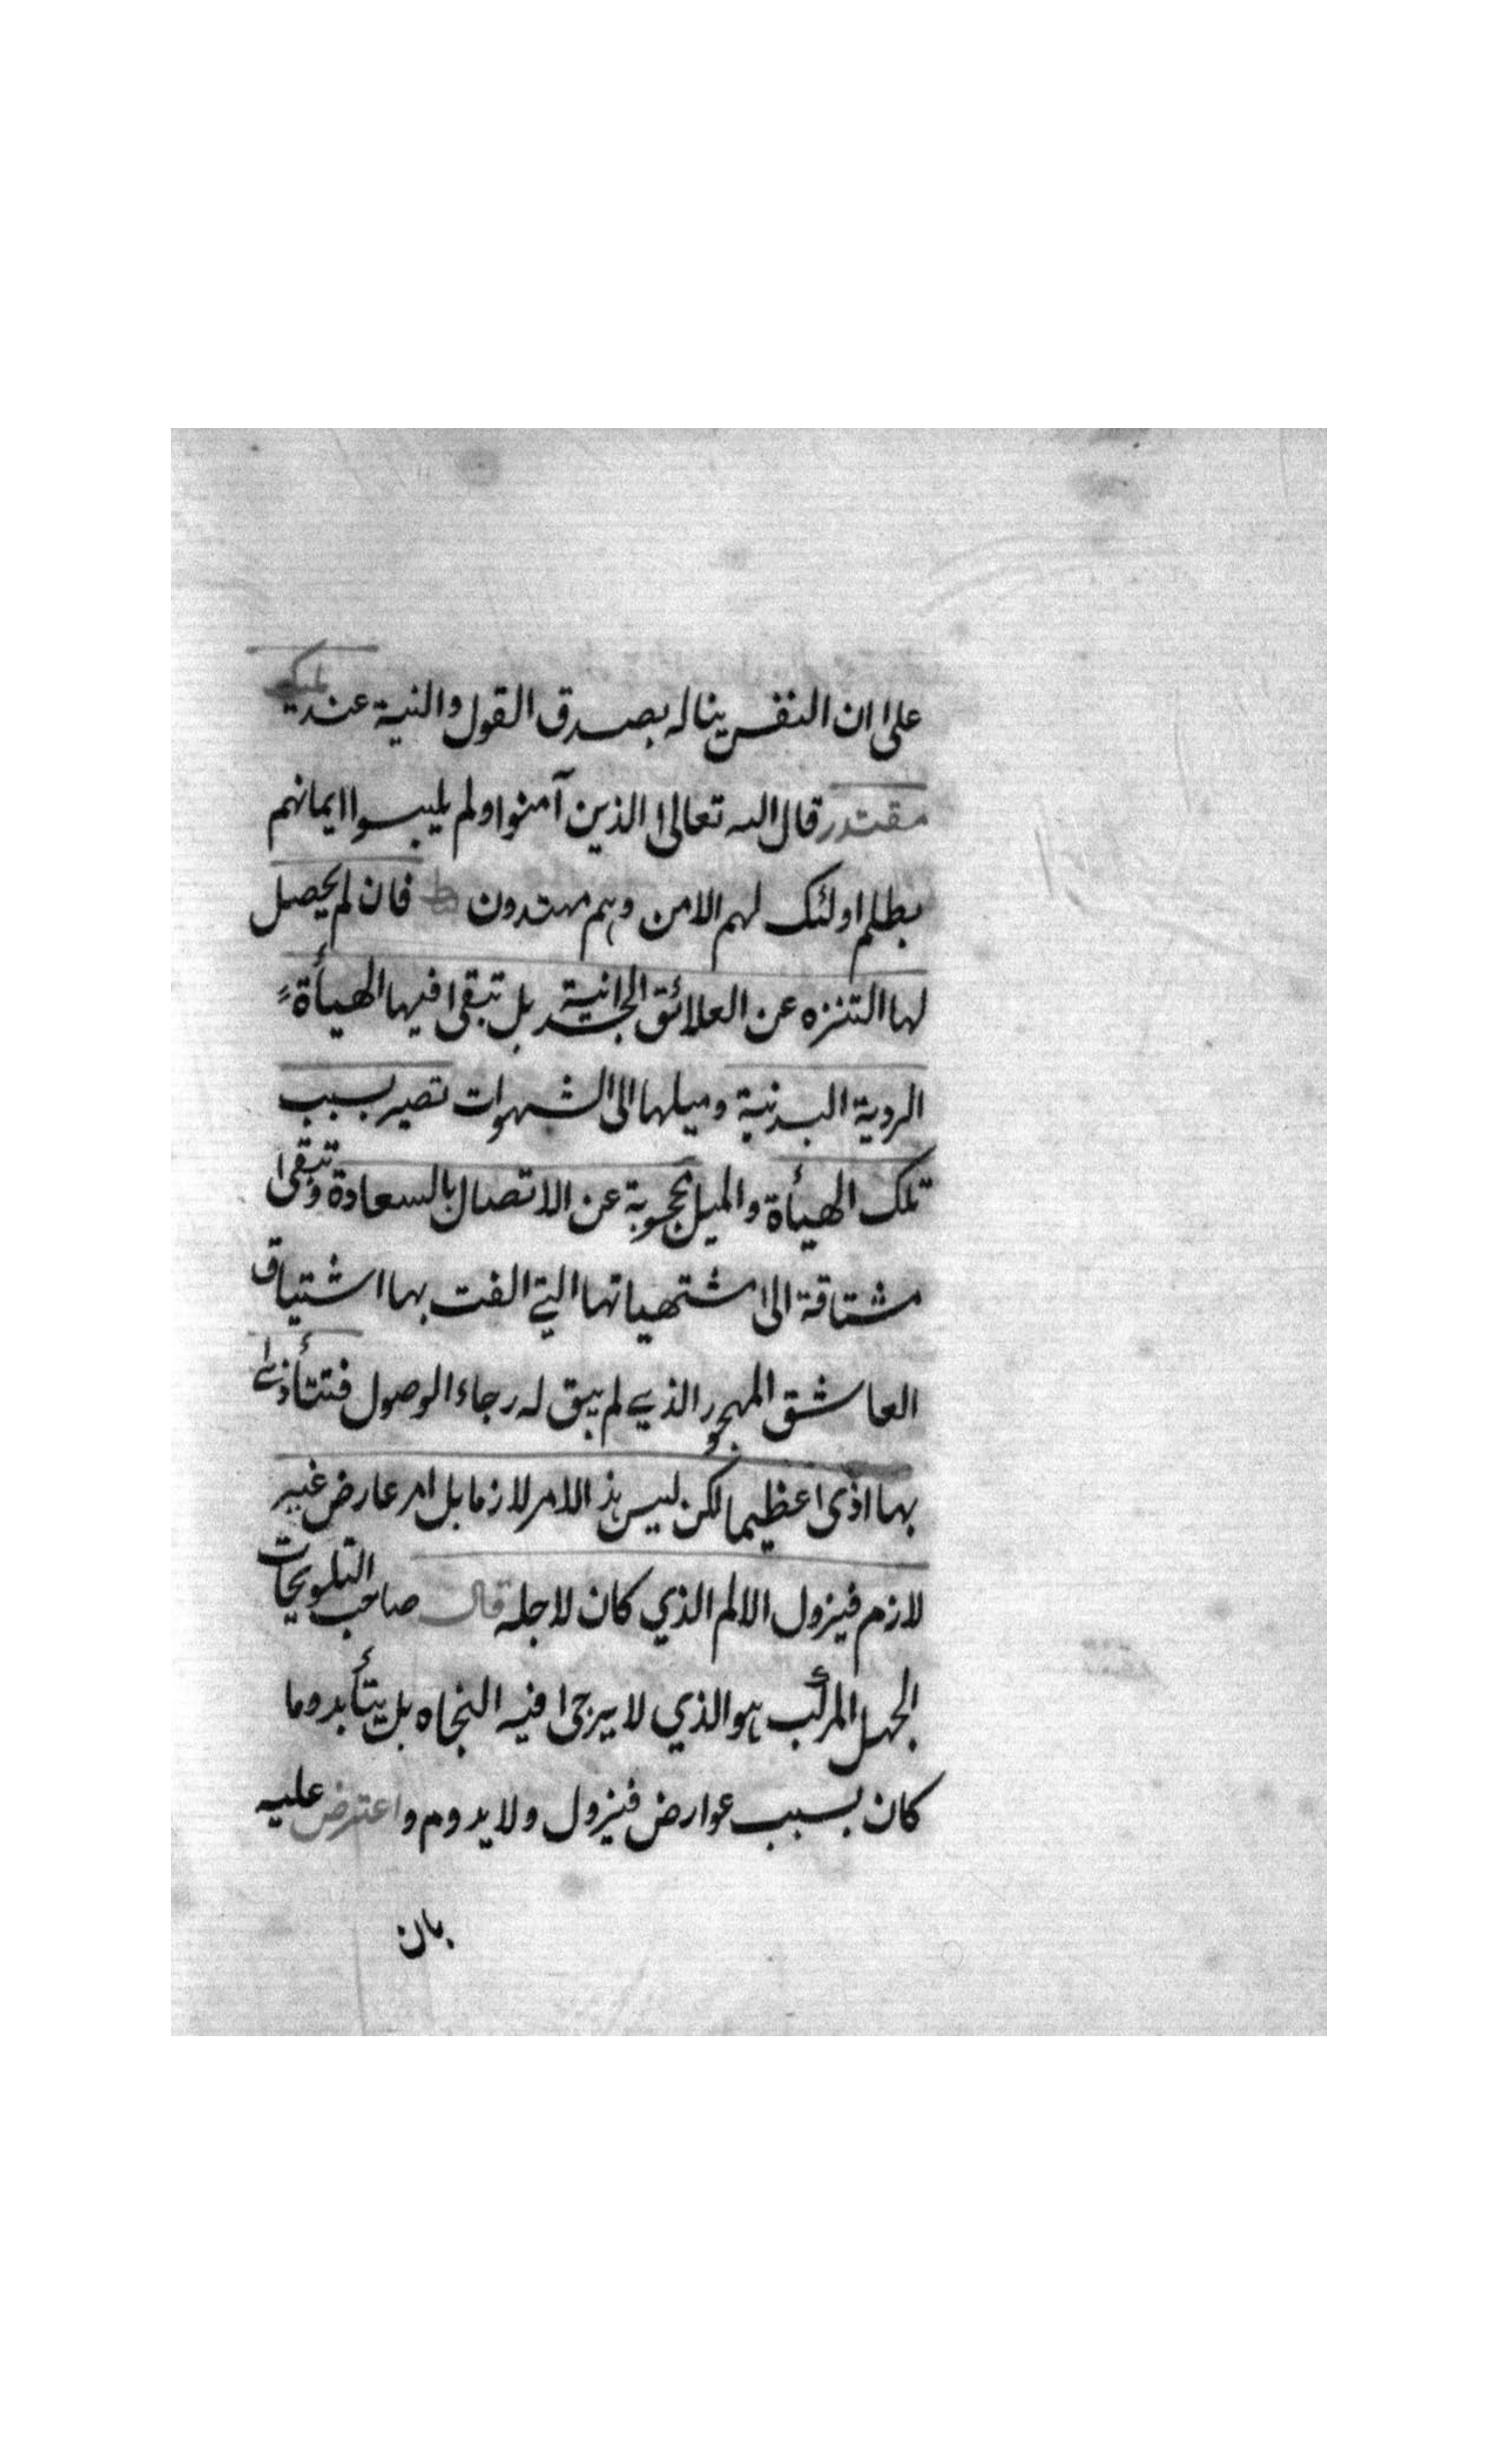 على ان النفس يناله بصدق القول والنية عند مليك
مقتدر قال الله تعالى الذين آمنوا ولم يلبسوا ايمانهم
بظلم اولئك لهم الامن وهم مهتدون فان لم يحصل
لها التنزه عن العلائق الجسدانية بل تبقى فيها الهيأة
الردية البدنية وميلها الى الشهوات تصير بسبب
تلك الهيأة والميل محجوبة عن الاتصال بالسعادة وتبقى
مشتاقة الى مشتهياتها التي الفت بها اشتياق
العاشق المهجور الذي لم يبق له رجاء الوصول فتتأذى
بها اذى عظيما لكن ليس هذا الامر لازما بل امر عارض غير
لازم فيزول الالم الذي كان لاجله قال صاحب التلويحات
الجهل المركب هو الذي لا يرجى فيه النجاه بل يتأبد وما
كان بسبب عوارض فيزول ولا يدوم واعترض عليه
بان